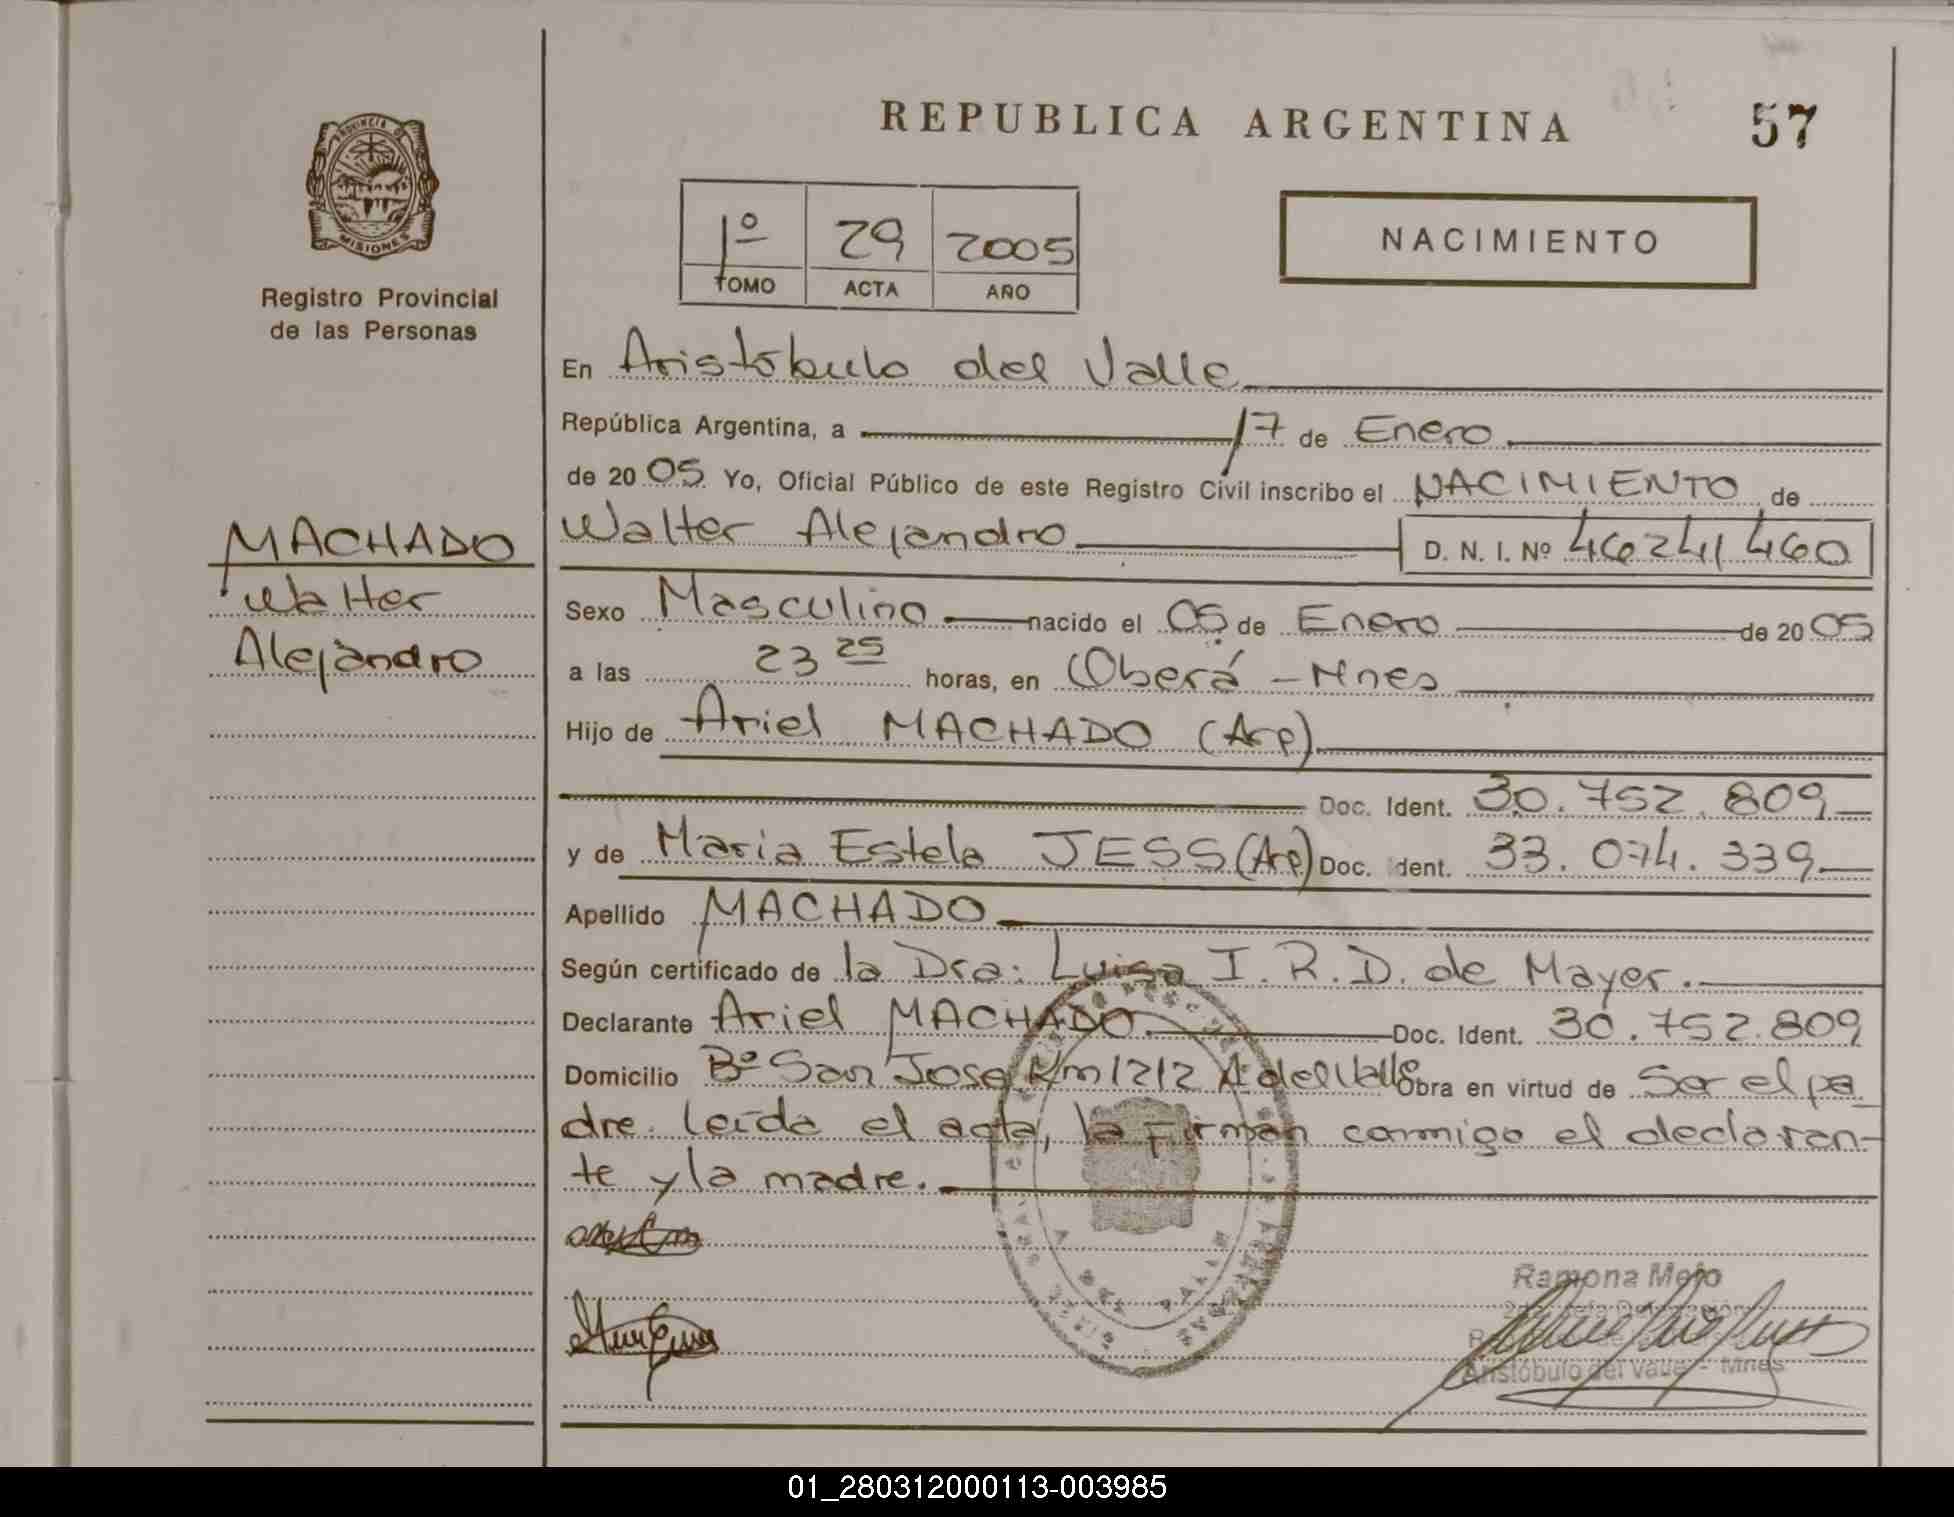 REPUBLICA ARGENTINA
57
PROVINCIA D
MISIONES
Registro Provincial
de las Personas
1º 29 2005
TOMO ACTA AÑO
NACIMIENTO
En Aristóbulo del Valle
República Argentina, a 17 de Enero
de 2005 Yo, Oficial Público de este Registro Civil inscribo el NACIMIENTO de
Walter Alejandro D. N. I. Nº 46241460
MACHADO
Walter
Alejandro
Sexo Masculino nacido el 05 de Enero de 2005
a las 23 25 horas, en Oberá - Mnes
Hijo de Ariel MACHADO (Arg)
Doc. Ident. 30.752.809
y de Maria Estela JESS (Arg) Doc. Ident. 33.074.339
Apellido MACHADO
Según certificado de la Dra: Luisa I. R. D. de Mayer.
Declarante Ariel MACHADO Doc. Ident. 30.752.809
Domicilio Bº San Jose Km 1212 A. del Valle Obra en virtud de Ser el pa
dre. leída el acta, la firman conmigo el declaran-
te y la madre.
Ramona Melo
Aristóbulo del Valle - Mnes
01_280312000113-003985